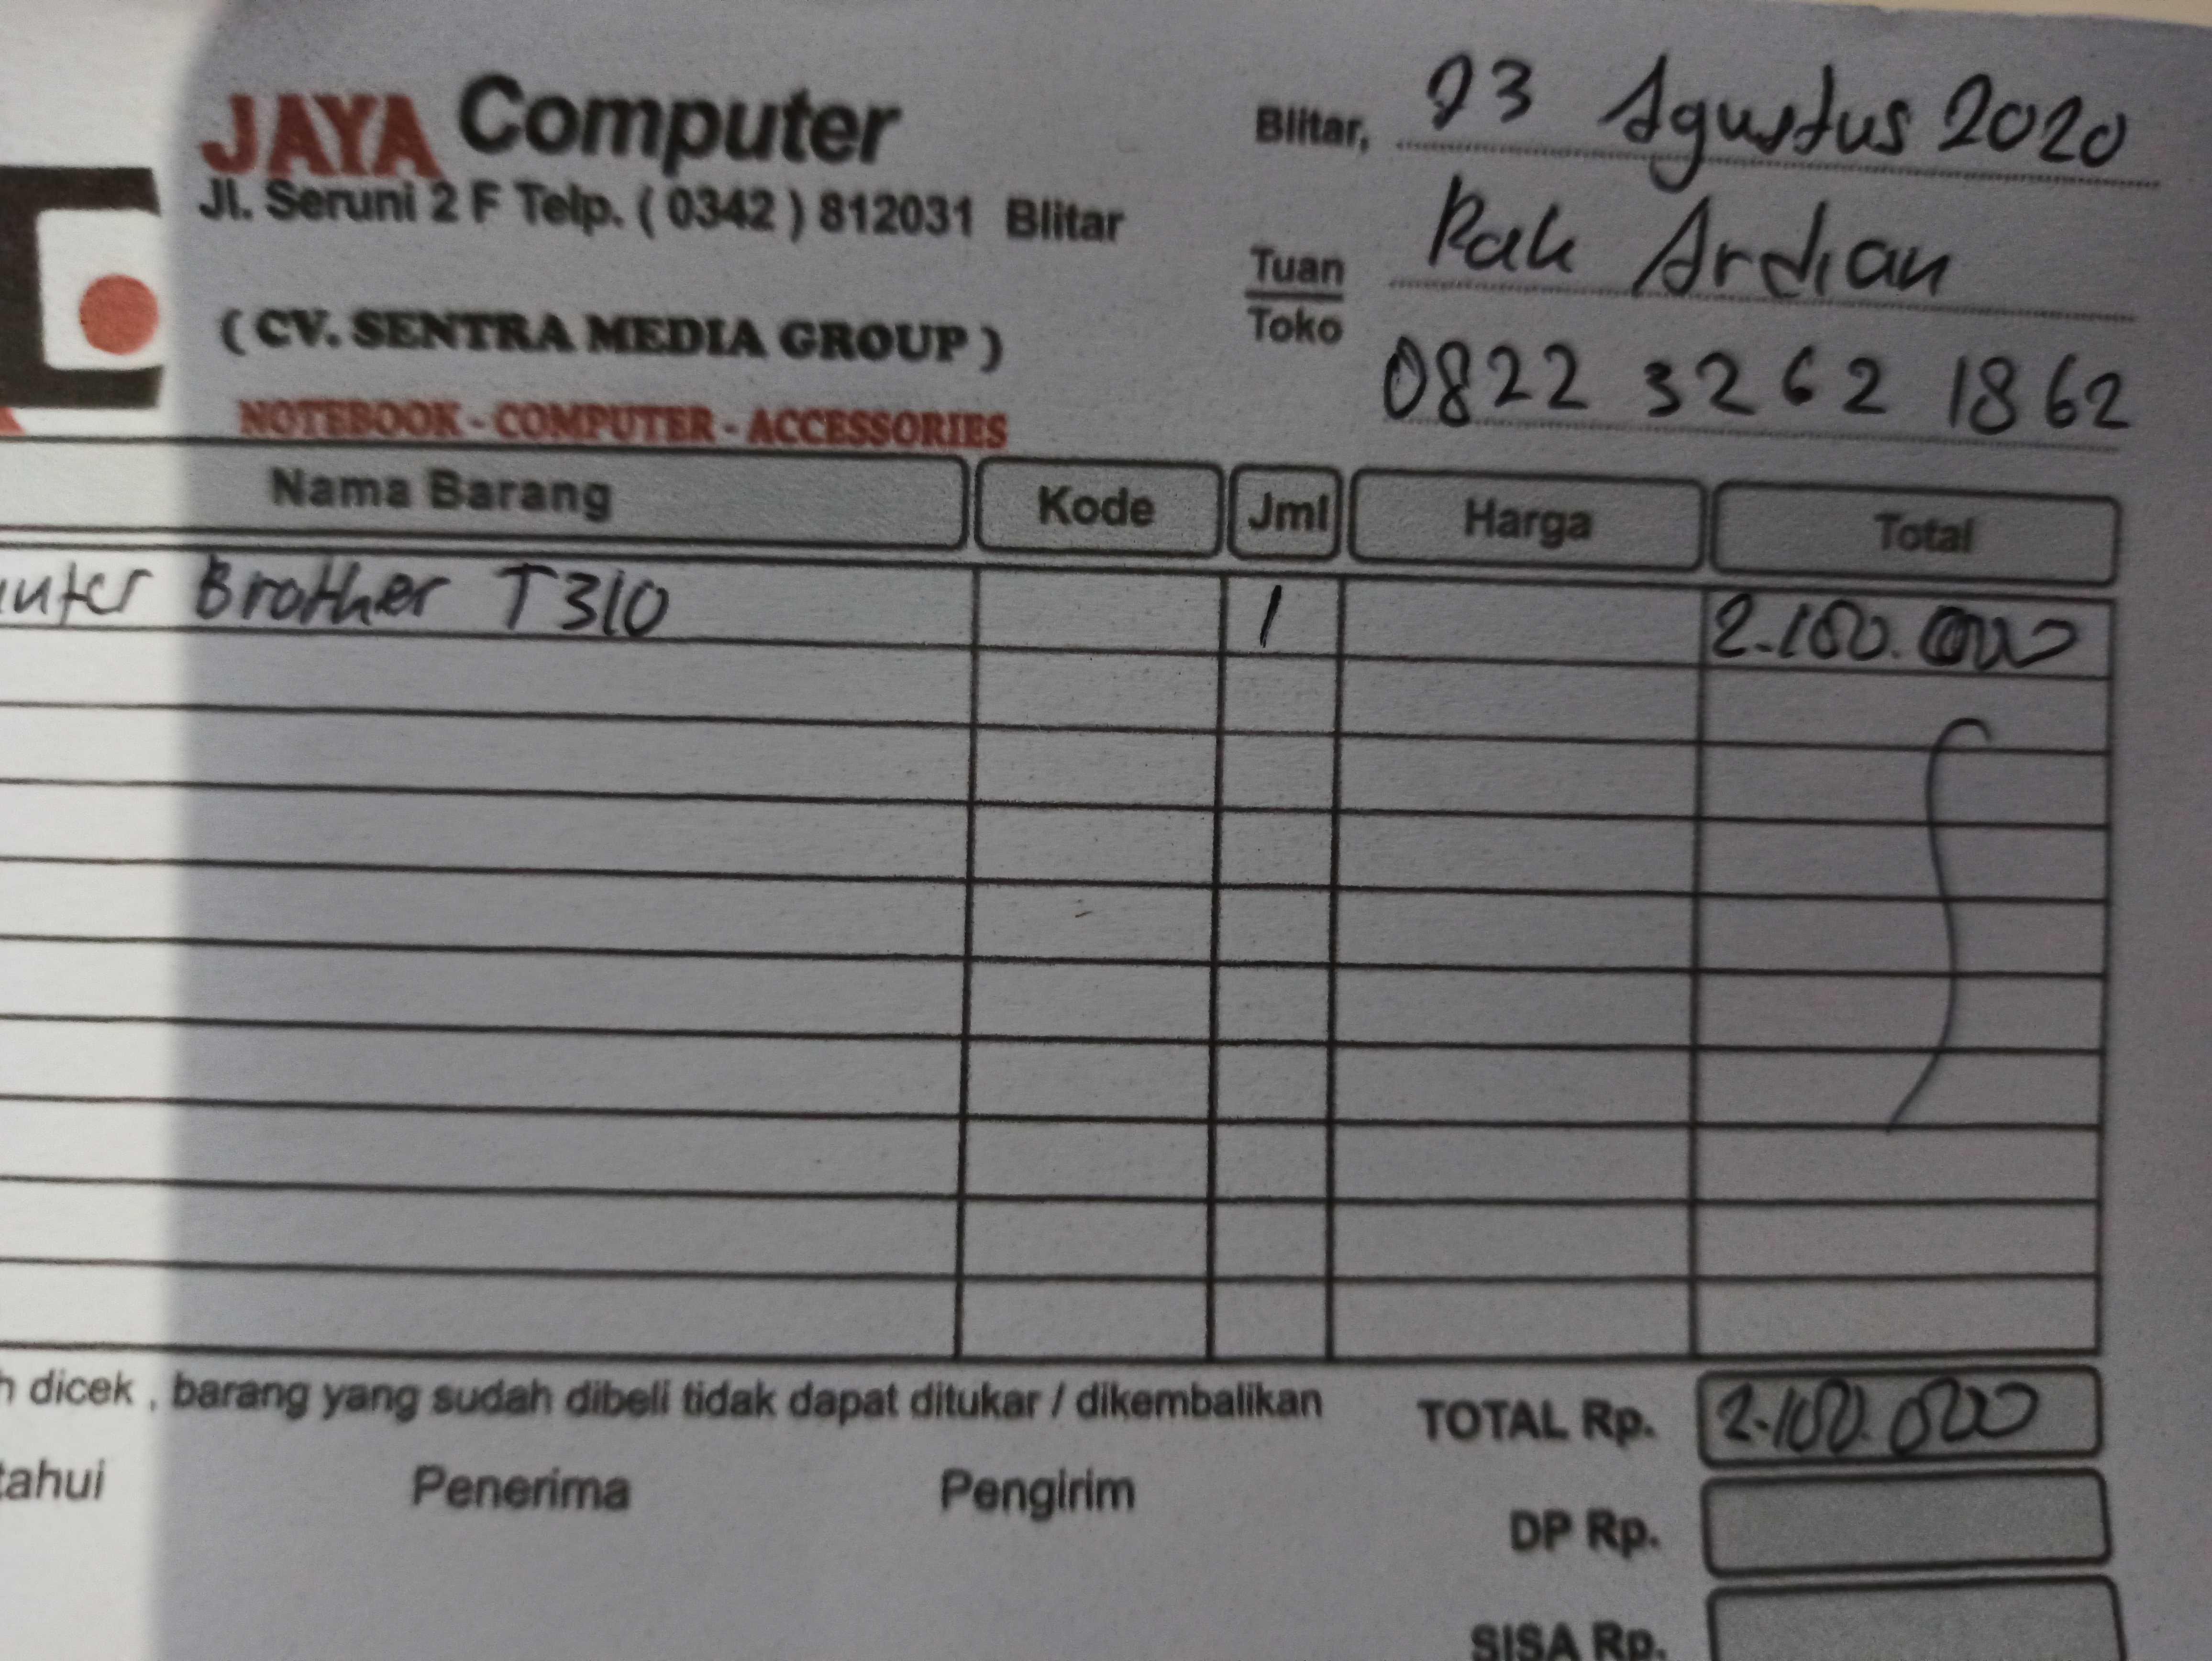 JAYA Computer
Jl. Seruni 2 F Telp. ( 0342 ) 812031 Blitar
( CV. SENTRA MEDIA GROUP )
NOTEBOOK - COMPUTER - ACCESSORIES
Blitar, 23 Agustus 2020
Tuan Pak Ardian
Toko
0822 3262 1862
Nama Barang Kode Jml Harga Total
inter Brother T310 1 2.100.000
h dicek , barang yang sudah dibeli tidak dapat ditukar / dikembalikan
TOTAL Rp. 2.100.000
tahui Penerima Pengirim
DP Rp.
SISA Rp.